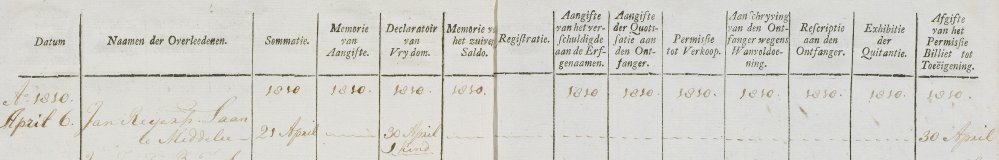 Datum
Naamen der Overleedenen.
Sommatie.
Memorie
van
Aangifte.
Declaratoir
van
Vrydom.
Memorie v
het zuiver
Saldo.
Regiſtratie.
Aangifte
van het ver-
ſchuldigde
aan de Erf-
genaamen.
Aangifte
der Quoti-
ſatie aan
den Ont-
fanger.
Permiſſie
tot Verkoop.
Aanſchryving
van den Ont-
fanger wegens
Wanvoldoe-
ning.
Reſcriptie
aan den
Ontfanger.
Exhibitie
der
Quitantie.
Afgifte
van het
Permiſſie
Billiet tot
Toeëigening.
Ao 1810. 1810 1810. 1810. 1810. 1810 1810. 1810. 1810. 1810. 1810. 1810.
April 6. Jan Laan 21 April 30 April 30 April
te Middelie 1 kind